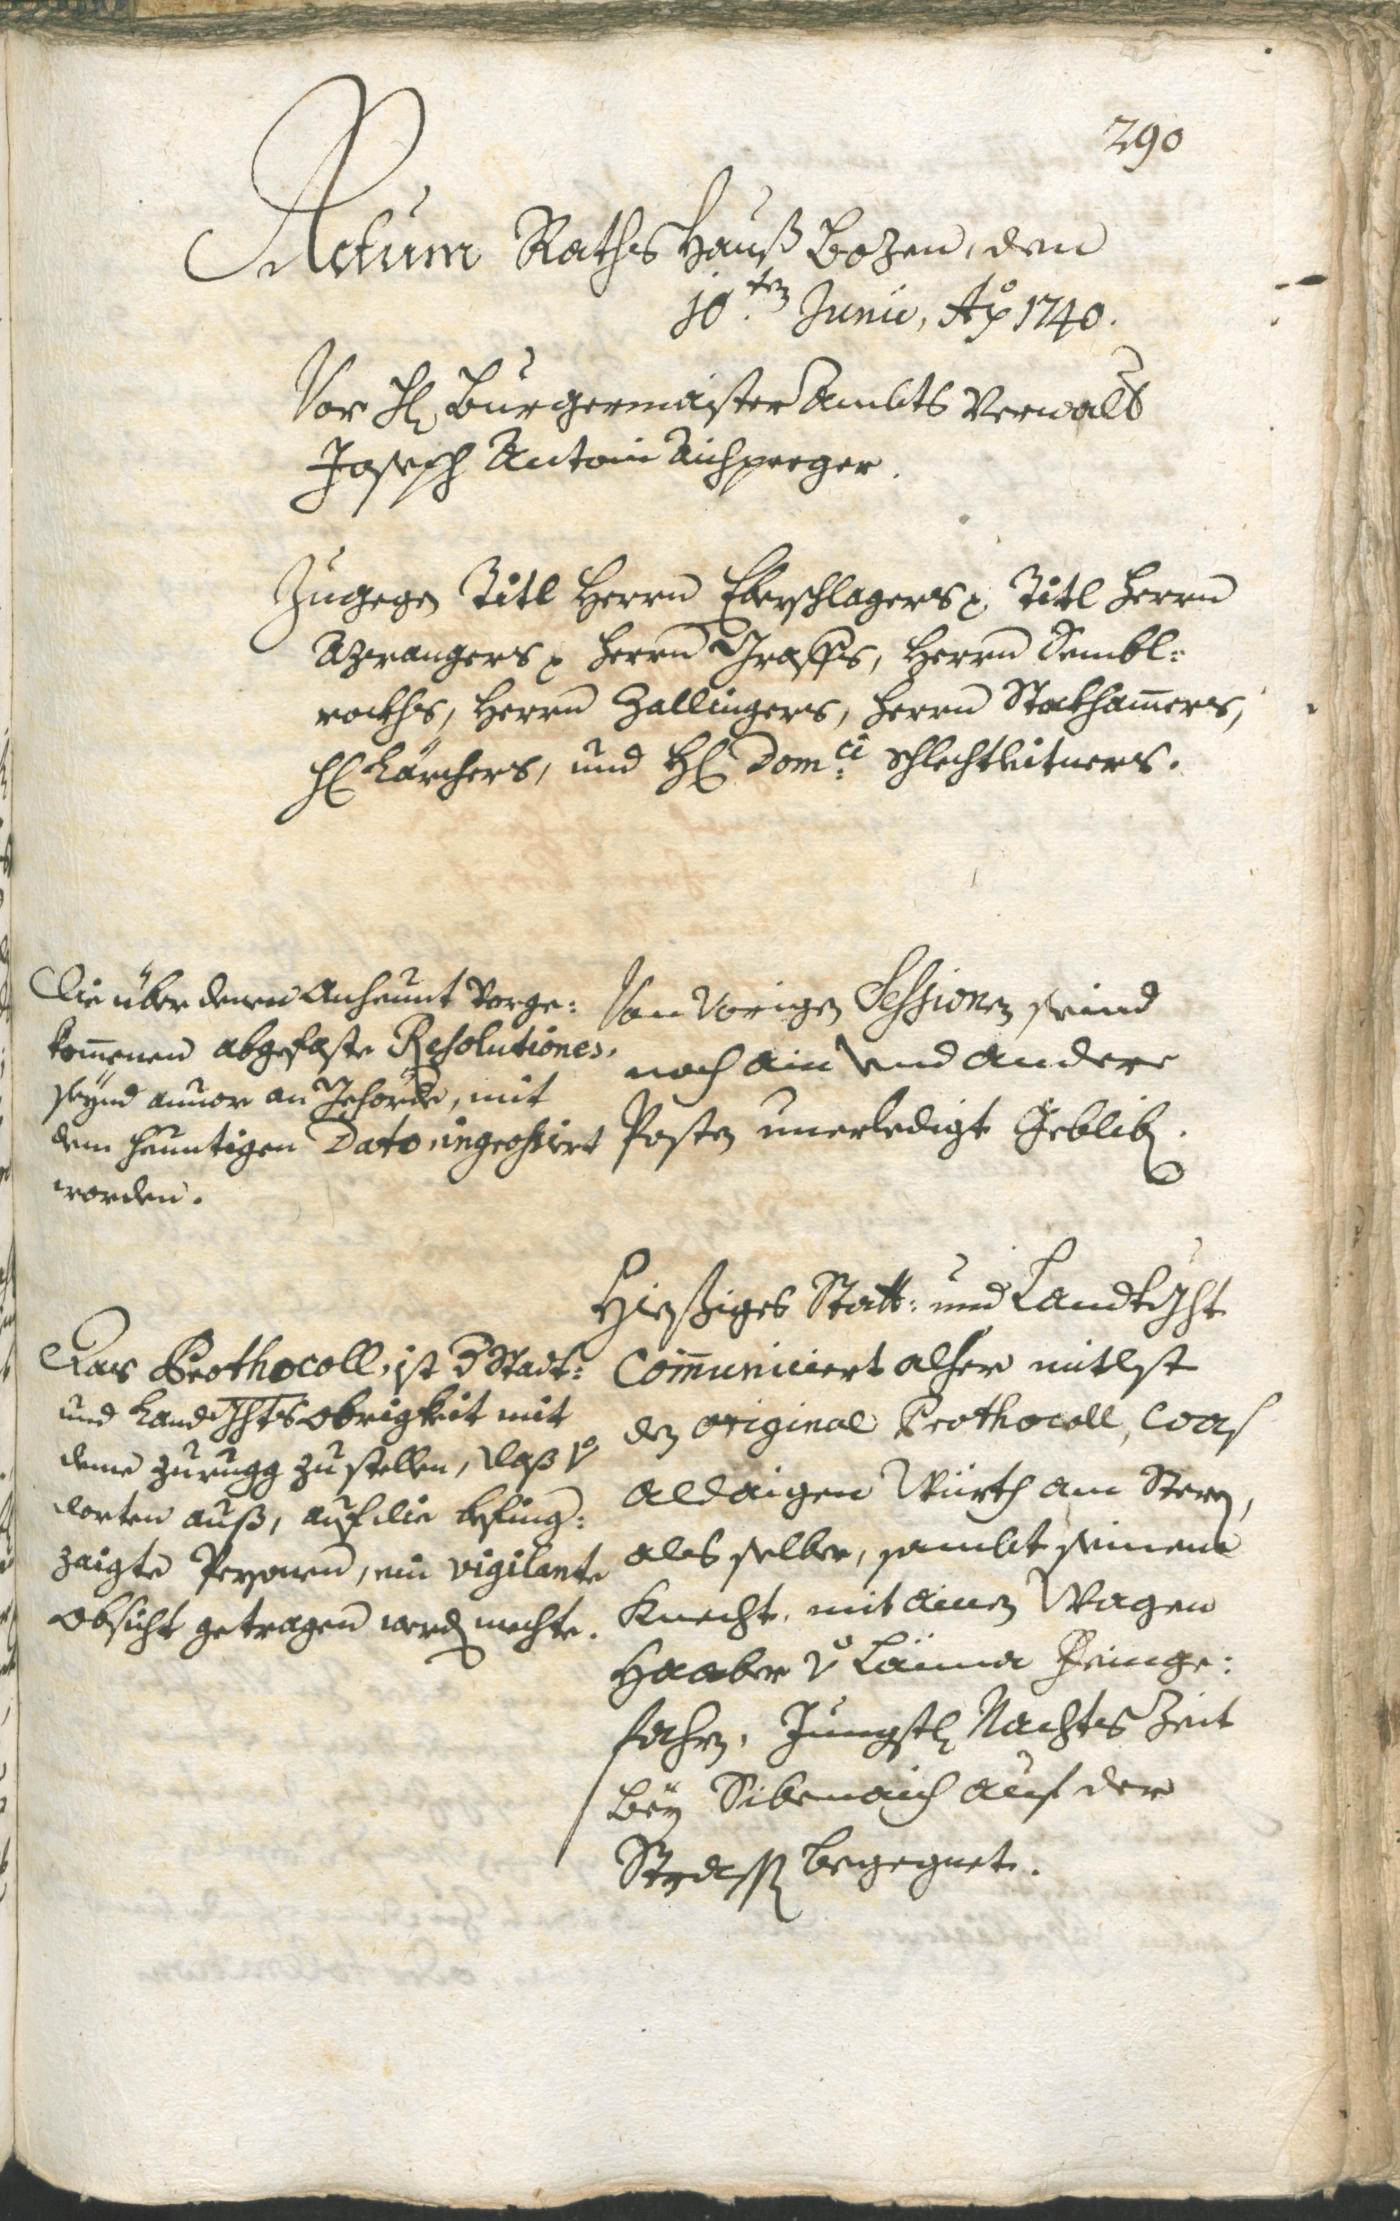 290
Actum Raths Hauß Bozen, den
10.ten Junii, Ao 1740.
Vor H. Burgermaister Ambts Verwalt
Joseph Antoni Aichperger.
Zugegen Titl Herrn Eberschlagers, Titl Herrn
Azwangers, Herrn Graffs, Herrn Dembl-
rockhs, Herrn Zallingers, Herrn Stockhamers,
H Kärchers, und H Domci Schlechtleitners.
Die über denen Anheunt vorge:
komenen abgefaste Resolutiones,
seynd anvor an Gehörde, mit
dem heuntigen Dato ingrossiert
worden.
Von vorigen Sessionen seind
noch ain und andere
Posten unerledigt Geblib.
Das Prothocoll, ist d Stadt:
und Landtghts obrigkeit mit
deme zurugg zu stellen, daß v
dorten auß, auf die
zaigte Personen, ein vigilante
obsicht getragen werd mechte.
Hießiges Statt: und Landtght
Communiciert alher mitlst
des original Prothocoll, was
aldaigen Würth am Stern,
als selber, sambt seinem
Knecht, mit ainen Wagen
Haaber v
fahrn, Jungstl Nachts Zeit
bey Sibenaich auf der
Strass begegnet.